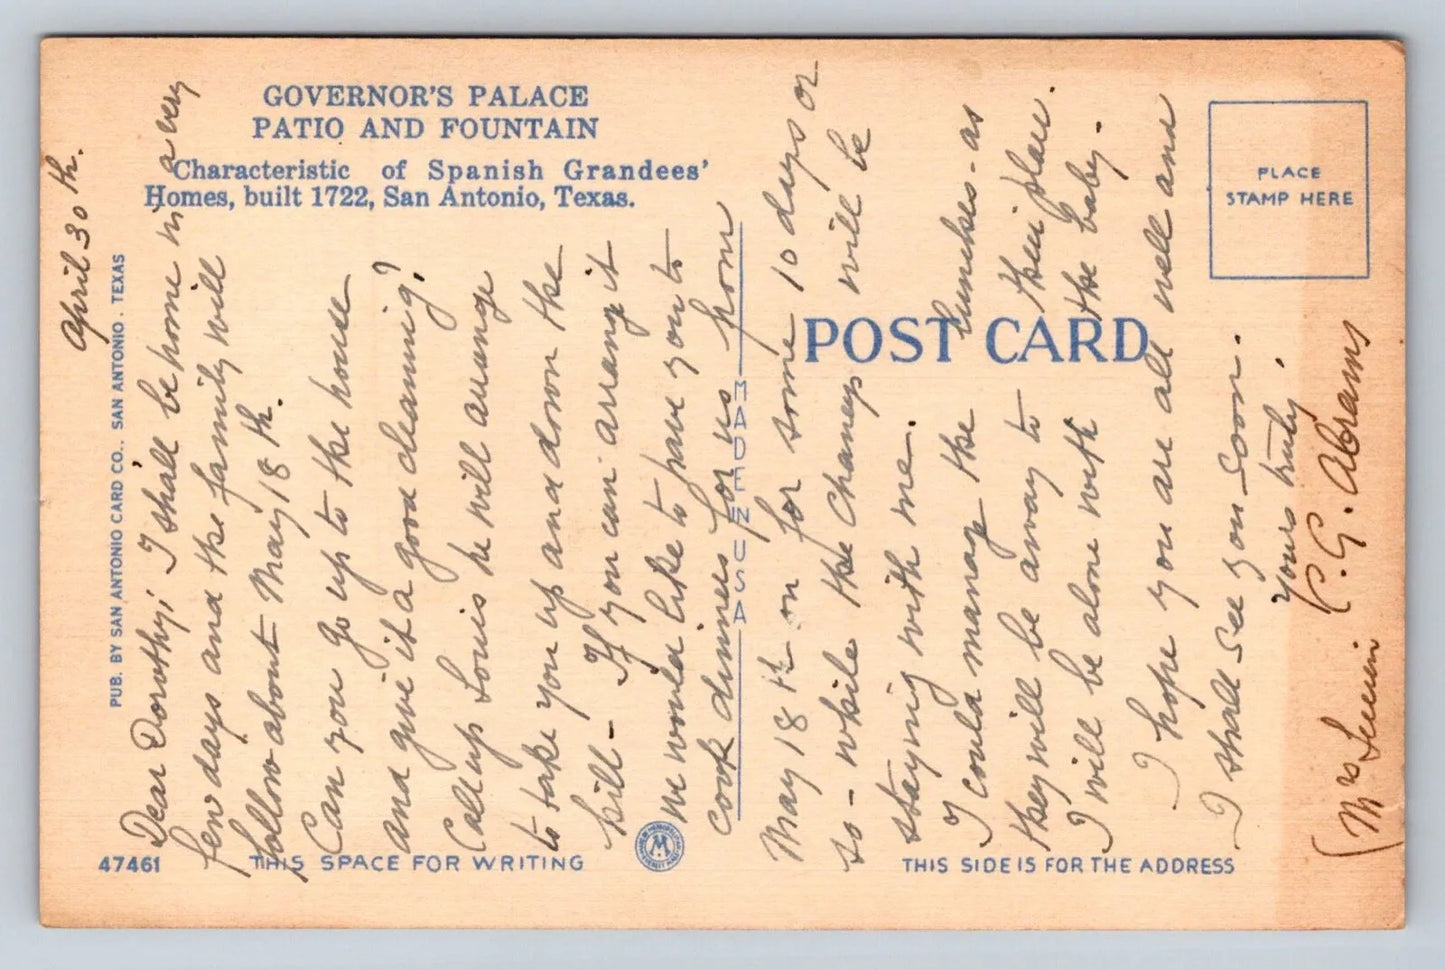 GOVERNOR'S PALACE
PATIO AND FOUNTAIN
Characteristic of Spanish Grandees'
Homes, built 1722, San Antonio, Texas.
PUB. BY SAN ANTONIO CARD CO., SAN ANTONIO, TEXAS
47461
THIS SPACE FOR WRITING
MADE IN USA
POST CARD
PLACE
STAMP HERE
THIS SIDE IS FOR THE ADDRESS
April 30th.
Dear Dorothy; I shall be home in a very
few days and the family will
follow about May 18th.
Can you go up to the house
and give it a good cleaning?
Call up Louis he will arrange
to take you up and down the
hill - If you can arrange it
we would like to have you to
cook dinners for us from
May 18th on for some 10 days or
so - while the Chaneys will be
staying with me.
I could manage the lunches - as
they will be away to their place.
I will be alone with the baby.
I hope you are all well and
I shall see you soon.
Yours truly,
C. G. Abrams
(Mrs